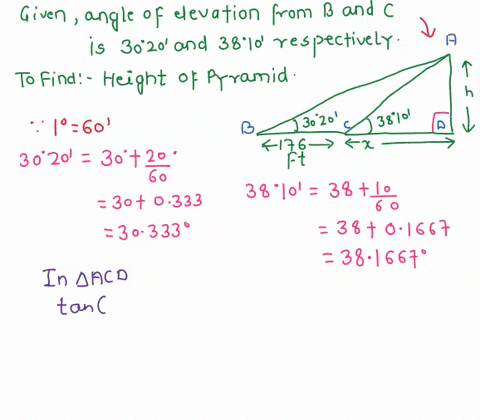 Given, angle of elevation from B and C
is 30°20' and 38°10' respectively.
To Find:- Height of Pyramid.
A
h
B
30°20'
C
38°10'
D
176
Ft
x
∵ 1° = 60'
30°20' = 30° + 20°/60
= 30 + 0.333
= 30.333°
38°10' = 38 + 10/60
= 38 + 0.1667
= 38.1667°
In ΔACD
tan(